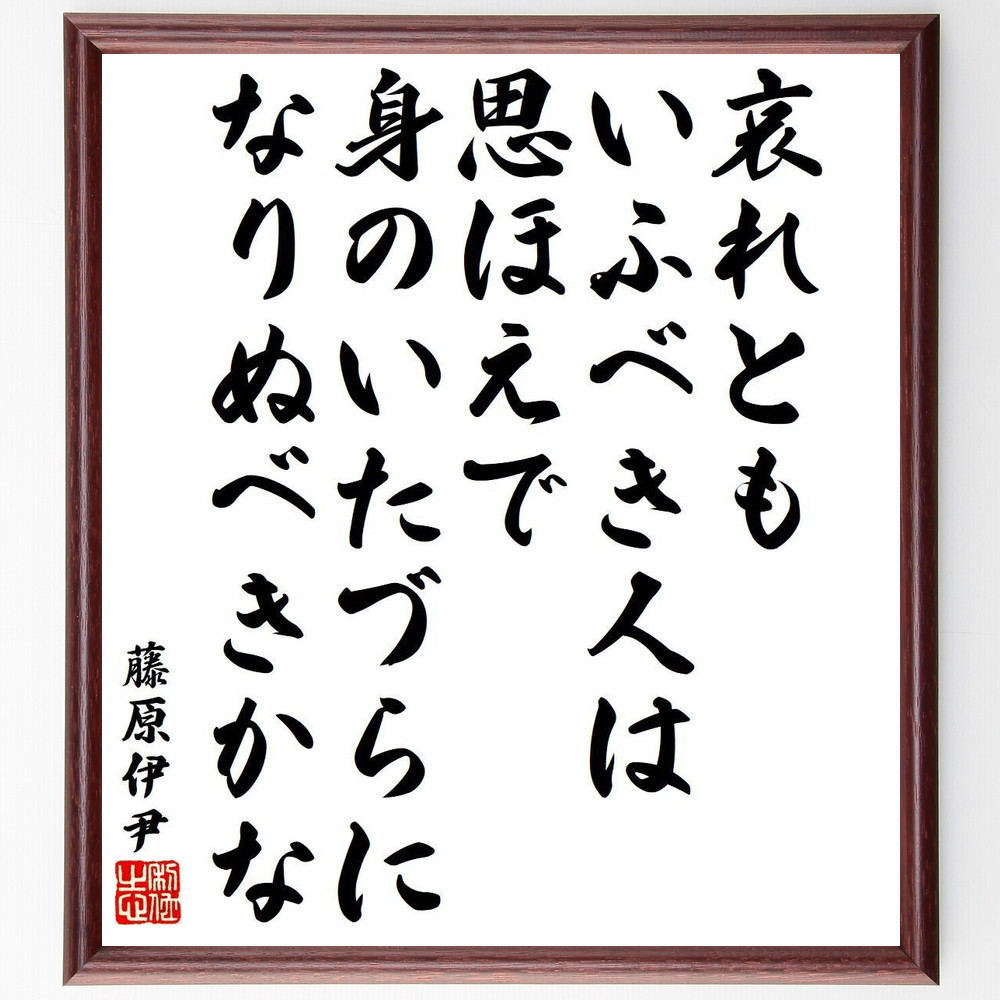 哀れとも
いふべき人は
思ほえで
身のいたづらに
なりぬべきかな
藤原伊尹